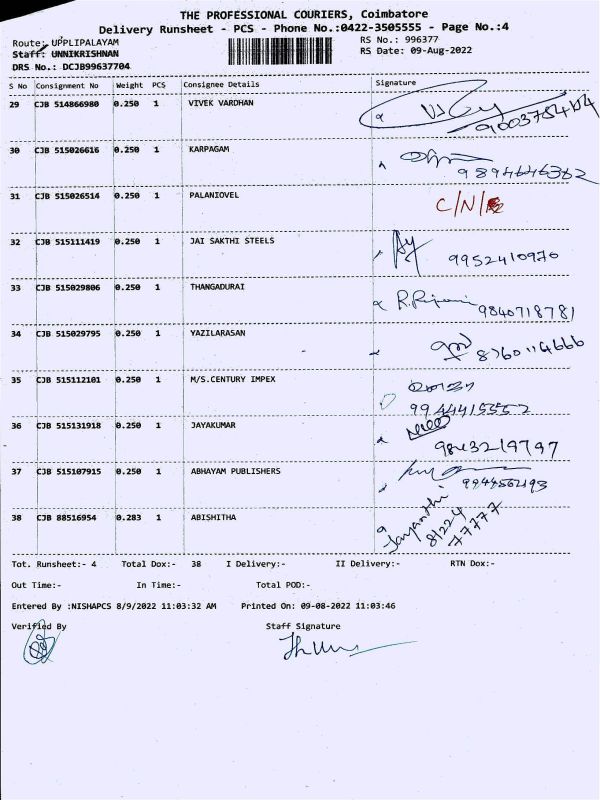 THE PROFESSIONAL COURIERS, Coimbatore
Delivery Runsheet - PCS - Phone No.:0422-3505555 - Page No.:4
Route: UPPLIPALAYAM RS No.: 996377
Staff: UNNIKRISHNAN RS Date: 09-Aug-2022
DRS No.: DCJB99637704
S No Consignment No Weight PCS Consignee Details Signature
29 CJB 514866980 0.250 1 VIVEK VARDHAN
30 CJB 515026616 0.250 1 KARPAGAM
9894646382
31 CJB 515026514 0.250 1 PALANIOVEL C/N/
32 CJB 515111419 0.250 1 JAI SAKTHI STEELS
9952410970
33 CJB 515029806 0.250 1 THANGADURAI
9840718781
34 CJB 515029795 0.250 1 YAZILARASAN
35 CJB 515112101 0.250 1 M/S.CENTURY IMPEX
36 CJB 515131918 0.250 1 JAYAKUMAR
9843219797
37 CJB 515107915 0.250 1 ABHAYAM PUBLISHERS
9944562193
38 CJB 88516954 0.283 1 ABISHITHA
Jayanthi
81224
77777
Tot. Runsheet:- 4 Total Dox:- 38 I Delivery:- II Delivery:- RTN Dox:-
Out Time:- In Time:- Total POD:-
Entered By :NISHAPCS 8/9/2022 11:03:32 AM Printed On: 09-08-2022 11:03:46
Verified By Staff Signature